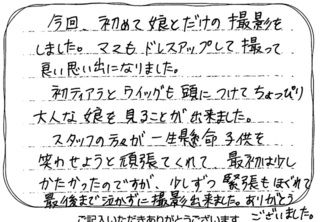 今回、初めて娘とだけの撮影を
しました。ママもドレスアップして撮って
良い思い出になりました。
初ティアラとウィッグも頭につけてちょっぴり
大人な娘を見ることが出来ました。
スタッフの方々が一生懸命子供を
笑わせようと頑張てくれて、最初は少し
かたかったのですが、少しずつ緊張もほぐれて
最後まで泣かずに撮影出来ました。ありがとう
ございました。
ご記入いただきありがとうございます